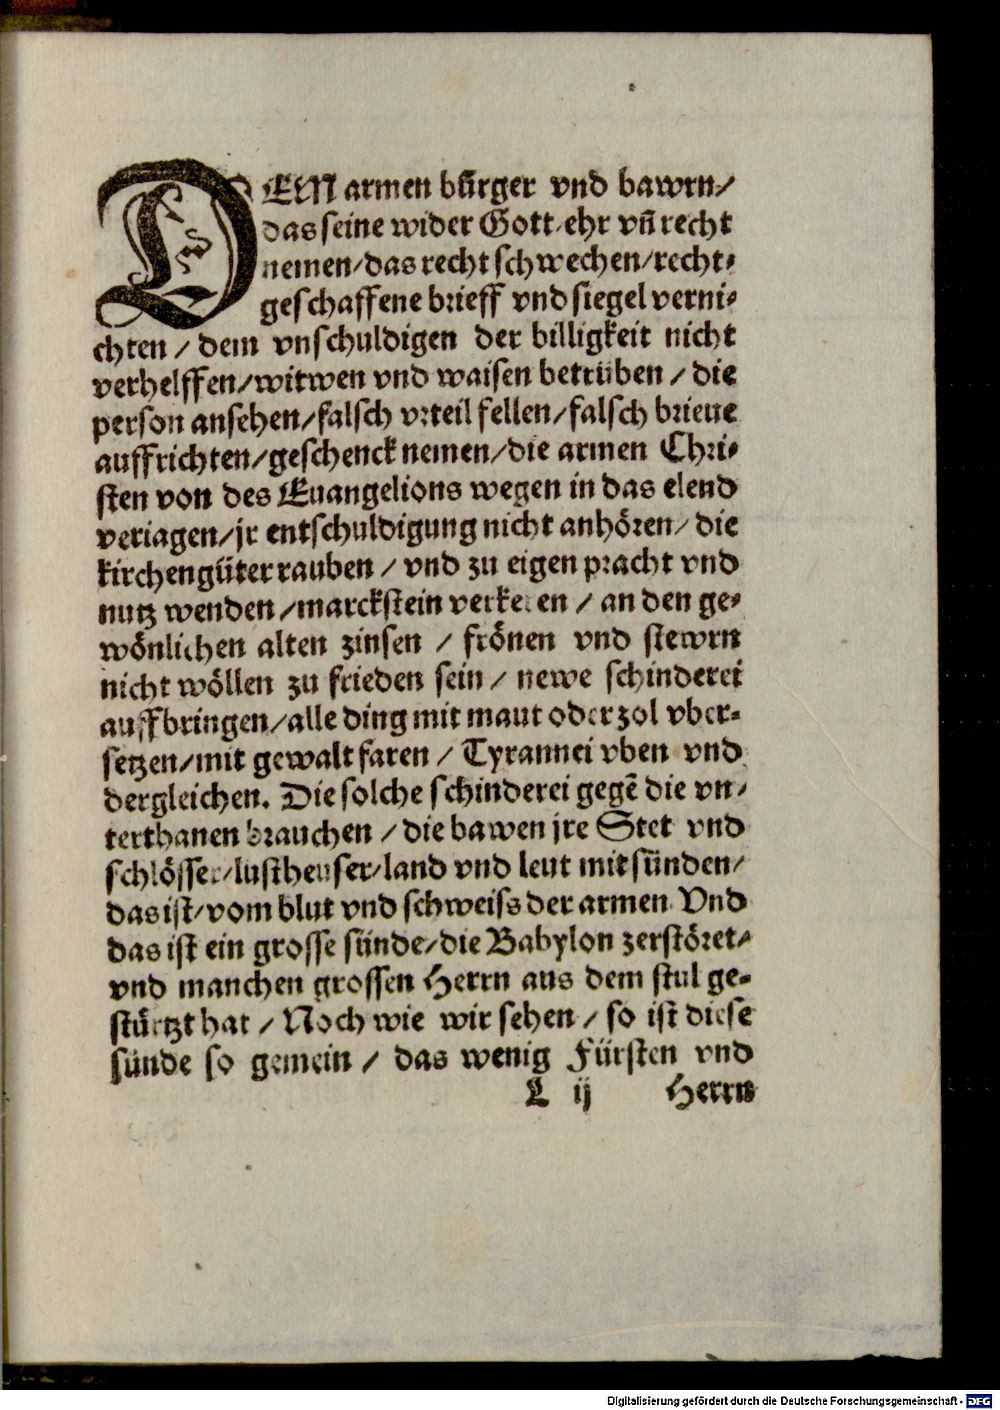 DEM armen bürger vnd bawrn/
das seine wider Gott/ehr vñ recht
nemen/das recht schwechen/recht-
geschaffene brieff vnd siegel verni-
chten / dem vnschuldigen der billigkeit nicht
verhelffen/witwen vnd waisen betrüben / die
person ansehen/falsch vrteil fellen/falsch brieue
auffrichten/geschenck nemen/die armen Chri-
sten von des Euangelions wegen in das elend
veriagen/jr entschuldigung nicht anhören/ die
kirchengüter rauben / vnd zu eigen pracht vnd
nutz wenden/marckstein verkeren / an den ge-
wönlichen alten zinsen / frönen vnd stewrn
nicht wöllen zu frieden sein / newe schinderei
auffbringen/alle ding mit maut oder zol vber-
setzen/mit gewalt faren / Tyrannei vben vnd
dergleichen. Die solche schinderei gegẽ die vn-
terthanen brauchen / die bawen jre Stet vnd
schlösser/lustheuser/land vnd leut mit sünden/
das ist/vom blut vnd schweiss der armen Vnd
das ist ein grosse sünde/die Babylon zerstöret/
vnd manchen grossen Herrn aus dem stul ge-
stürtzt hat / Noch wie wir sehen / so ist diese
sünde so gemein / das wenig Fürsten vnd
L ij Herrn
Digitalisierung gefördert durch die Deutsche Forschungsgemeinschaft - DFG